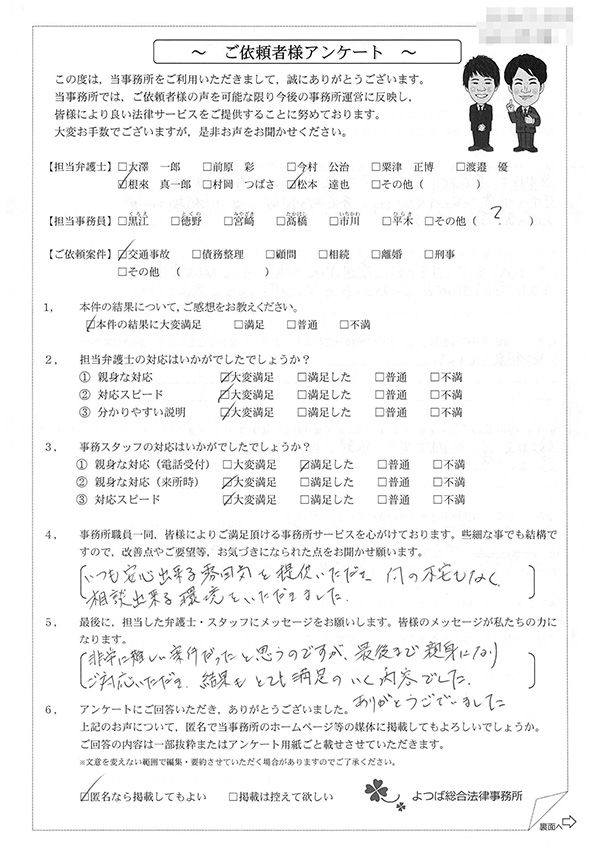 ～　ご依頼者様アンケート　～
この度は，当事務所をご利用いただきまして，誠にありがとうございます。
当事務所では，ご依頼者様の声を可能な限り今後の事務所運営に反映し，
皆様により良い法律サービスをご提供することに努めております。
大変お手数でございますが，是非お声をお聞かせください。
【担当弁護士】□大澤　一郎　□前原　彩　□今村　公治　□粟津　正博　□渡邉　優
☑根來　真一郎　□村岡　つばさ　☑松本　達也　□その他（　　　）
【担当事務員】□黒江　□徳野　□宮﨑　□高橋　□市川　□平木　□その他（　？　）
【ご依頼案件】☑交通事故　□債務整理　□顧問　□相続　□離婚　□刑事
□その他　（　　　　　）
１．　本件の結果について，ご感想をお教えください。
☑本件の結果に大変満足　□満足　□普通　□不満
２．　担当弁護士の対応はいかがでしたでしょうか？
①　親身な対応　☑大変満足　□満足した　□普通　□不満
②　対応スピード　☑大変満足　□満足した　□普通　□不満
③　分かりやすい説明　☑大変満足　□満足した　□普通　□不満
３．　事務スタッフの対応はいかがでしたでしょうか？
①　親身な対応（電話受付）　□大変満足　☑満足した　□普通　□不満
②　親身な対応（来所時）　☑大変満足　□満足した　□普通　□不満
③　対応スピード　☑大変満足　□満足した　□普通　□不満
４．　事務所職員一同，皆様によりご満足頂ける事務所サービスを心がけております。些細な事でも結構で
すので，改善点やご要望等，お気づきになられた点をお聞かせ願います。
いつも安心出来る雰囲気を提供いただき 何の不安もなく
相談出来る環境をいただきました。
５．　最後に，担当した弁護士・スタッフにメッセージをお願いします。皆様のメッセージが私たちの力に
なります。
非常に難しい案件だったと思うのですが、最後まで親身になり
ご対応いただき、結果もとても満足のいく内容でした。
ありがとうございました
６．　アンケートにご回答いただき，ありがとうございました。
上記のお声について，匿名で当事務所のホームページ等の媒体に掲載してもよろしいでしょうか。
ご回答の内容は一部抜粋またはアンケート用紙ごと載せさせていただきます。
※文意を変えない範囲で編集・要約させていただく場合がありますのでご了承ください。
☑匿名なら掲載してもよい　□掲載は控えて欲しい
よつば総合法律事務所
裏面へ